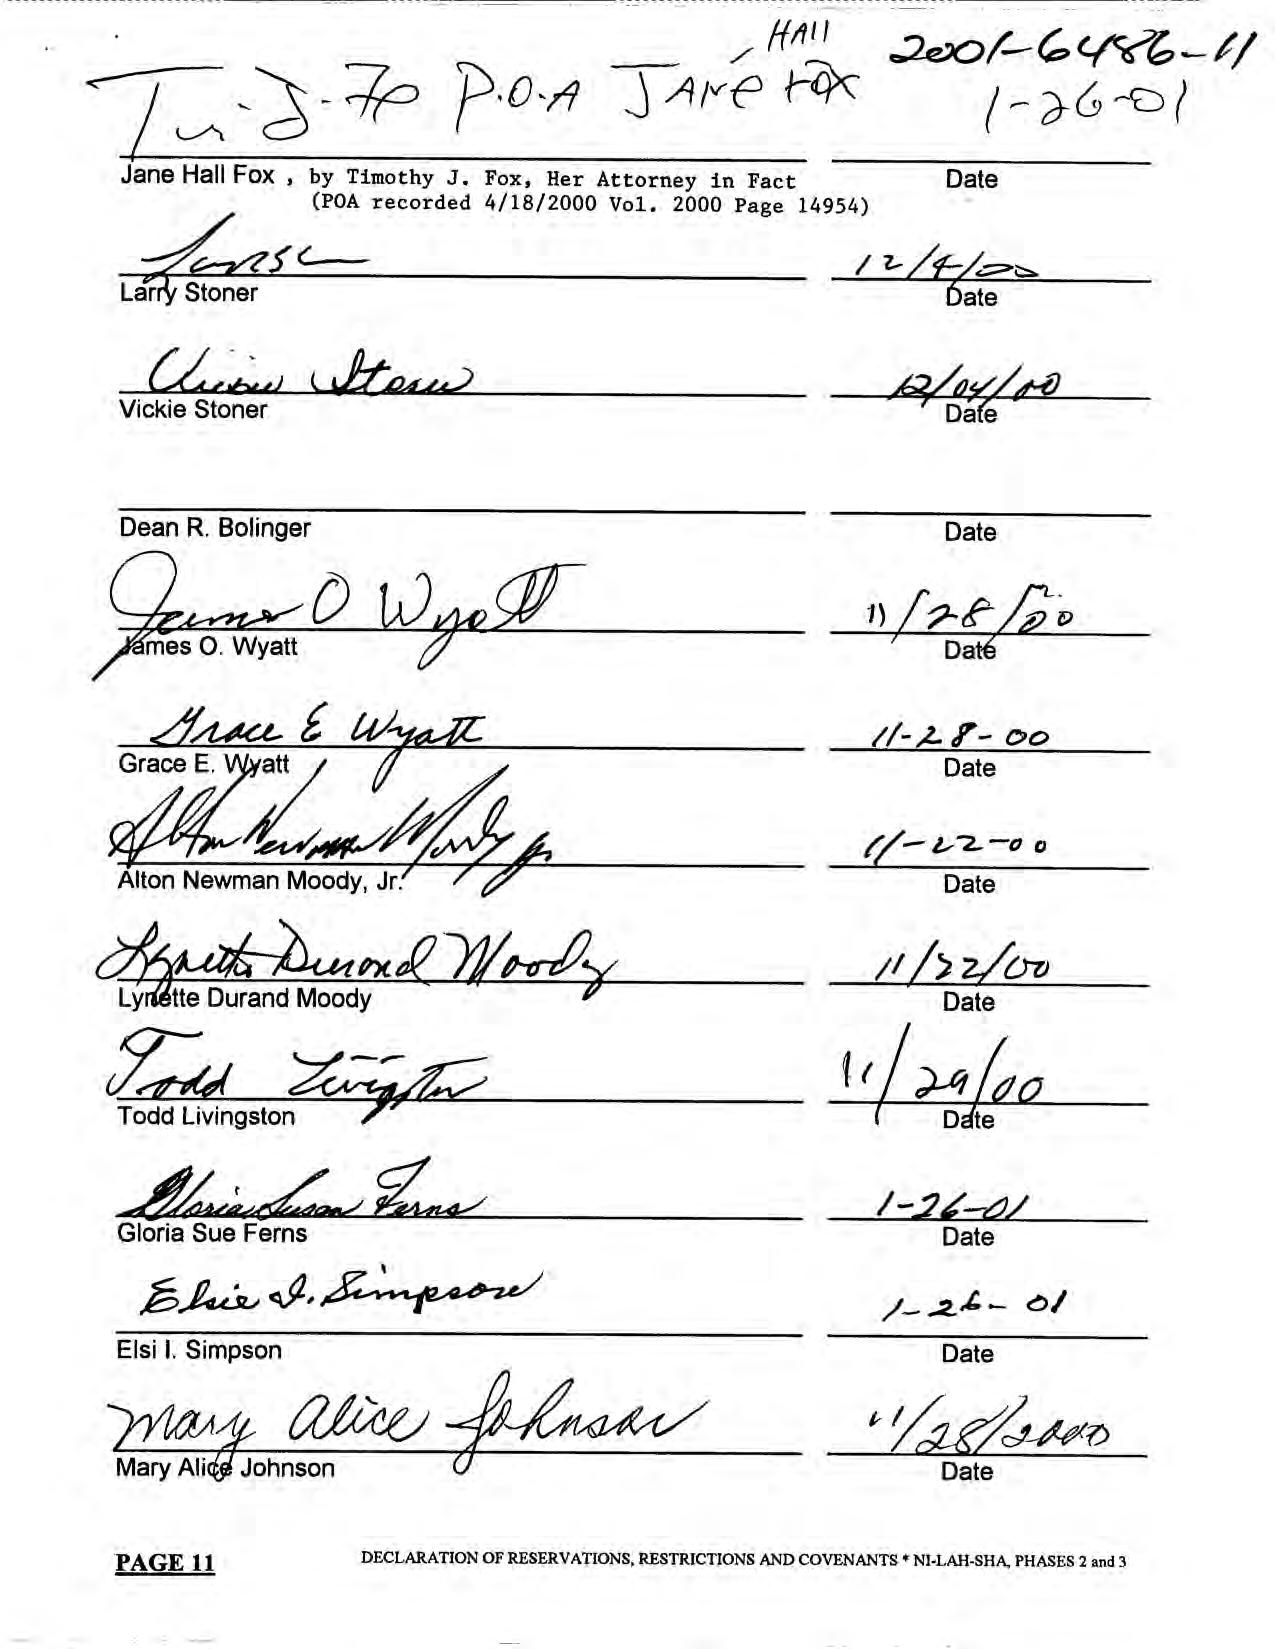 HAll 2001-6486-11
P.O.A JANE FOX 1-26-01
Jane Hall Fox , by Timothy J. Fox, Her Attorney in Fact Date
(POA recorded 4/18/2000 Vol. 2000 Page 14954)
12/4/00
Larry Stoner Date
Vickie Stoner 12/04/00
Vickie Stoner Date
Dean R. Bolinger Date
James O Wyatt 11/28/00
James O. Wyatt Date
Grace E Wyatt 11-28-00
Grace E. Wyatt Date
Alton Newman Moody Jr 11-22-00
Alton Newman Moody, Jr. Date
Lynette Durand Moody 11/22/00
Lynette Durand Moody Date
Todd Livingston 11/29/00
Todd Livingston Date
Gloria Susan Ferns 1-26-01
Gloria Sue Ferns Date
Elsie I. Simpson 1-26-01
Elsi I. Simpson Date
Mary Alice Johnson 11/28/2000
Mary Alice Johnson Date
PAGE 11 DECLARATION OF RESERVATIONS, RESTRICTIONS AND COVENANTS * NI-LAH-SHA, PHASES 2 and 3